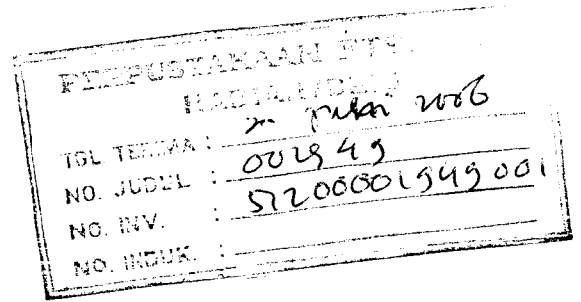 PERPUSTAKAAN FTSP
HADIAH/BELI
TGL TERIMA : 2006
NO. JUDUL : 002949
NO. INV. : 51200002949001
NO. INDUK. :